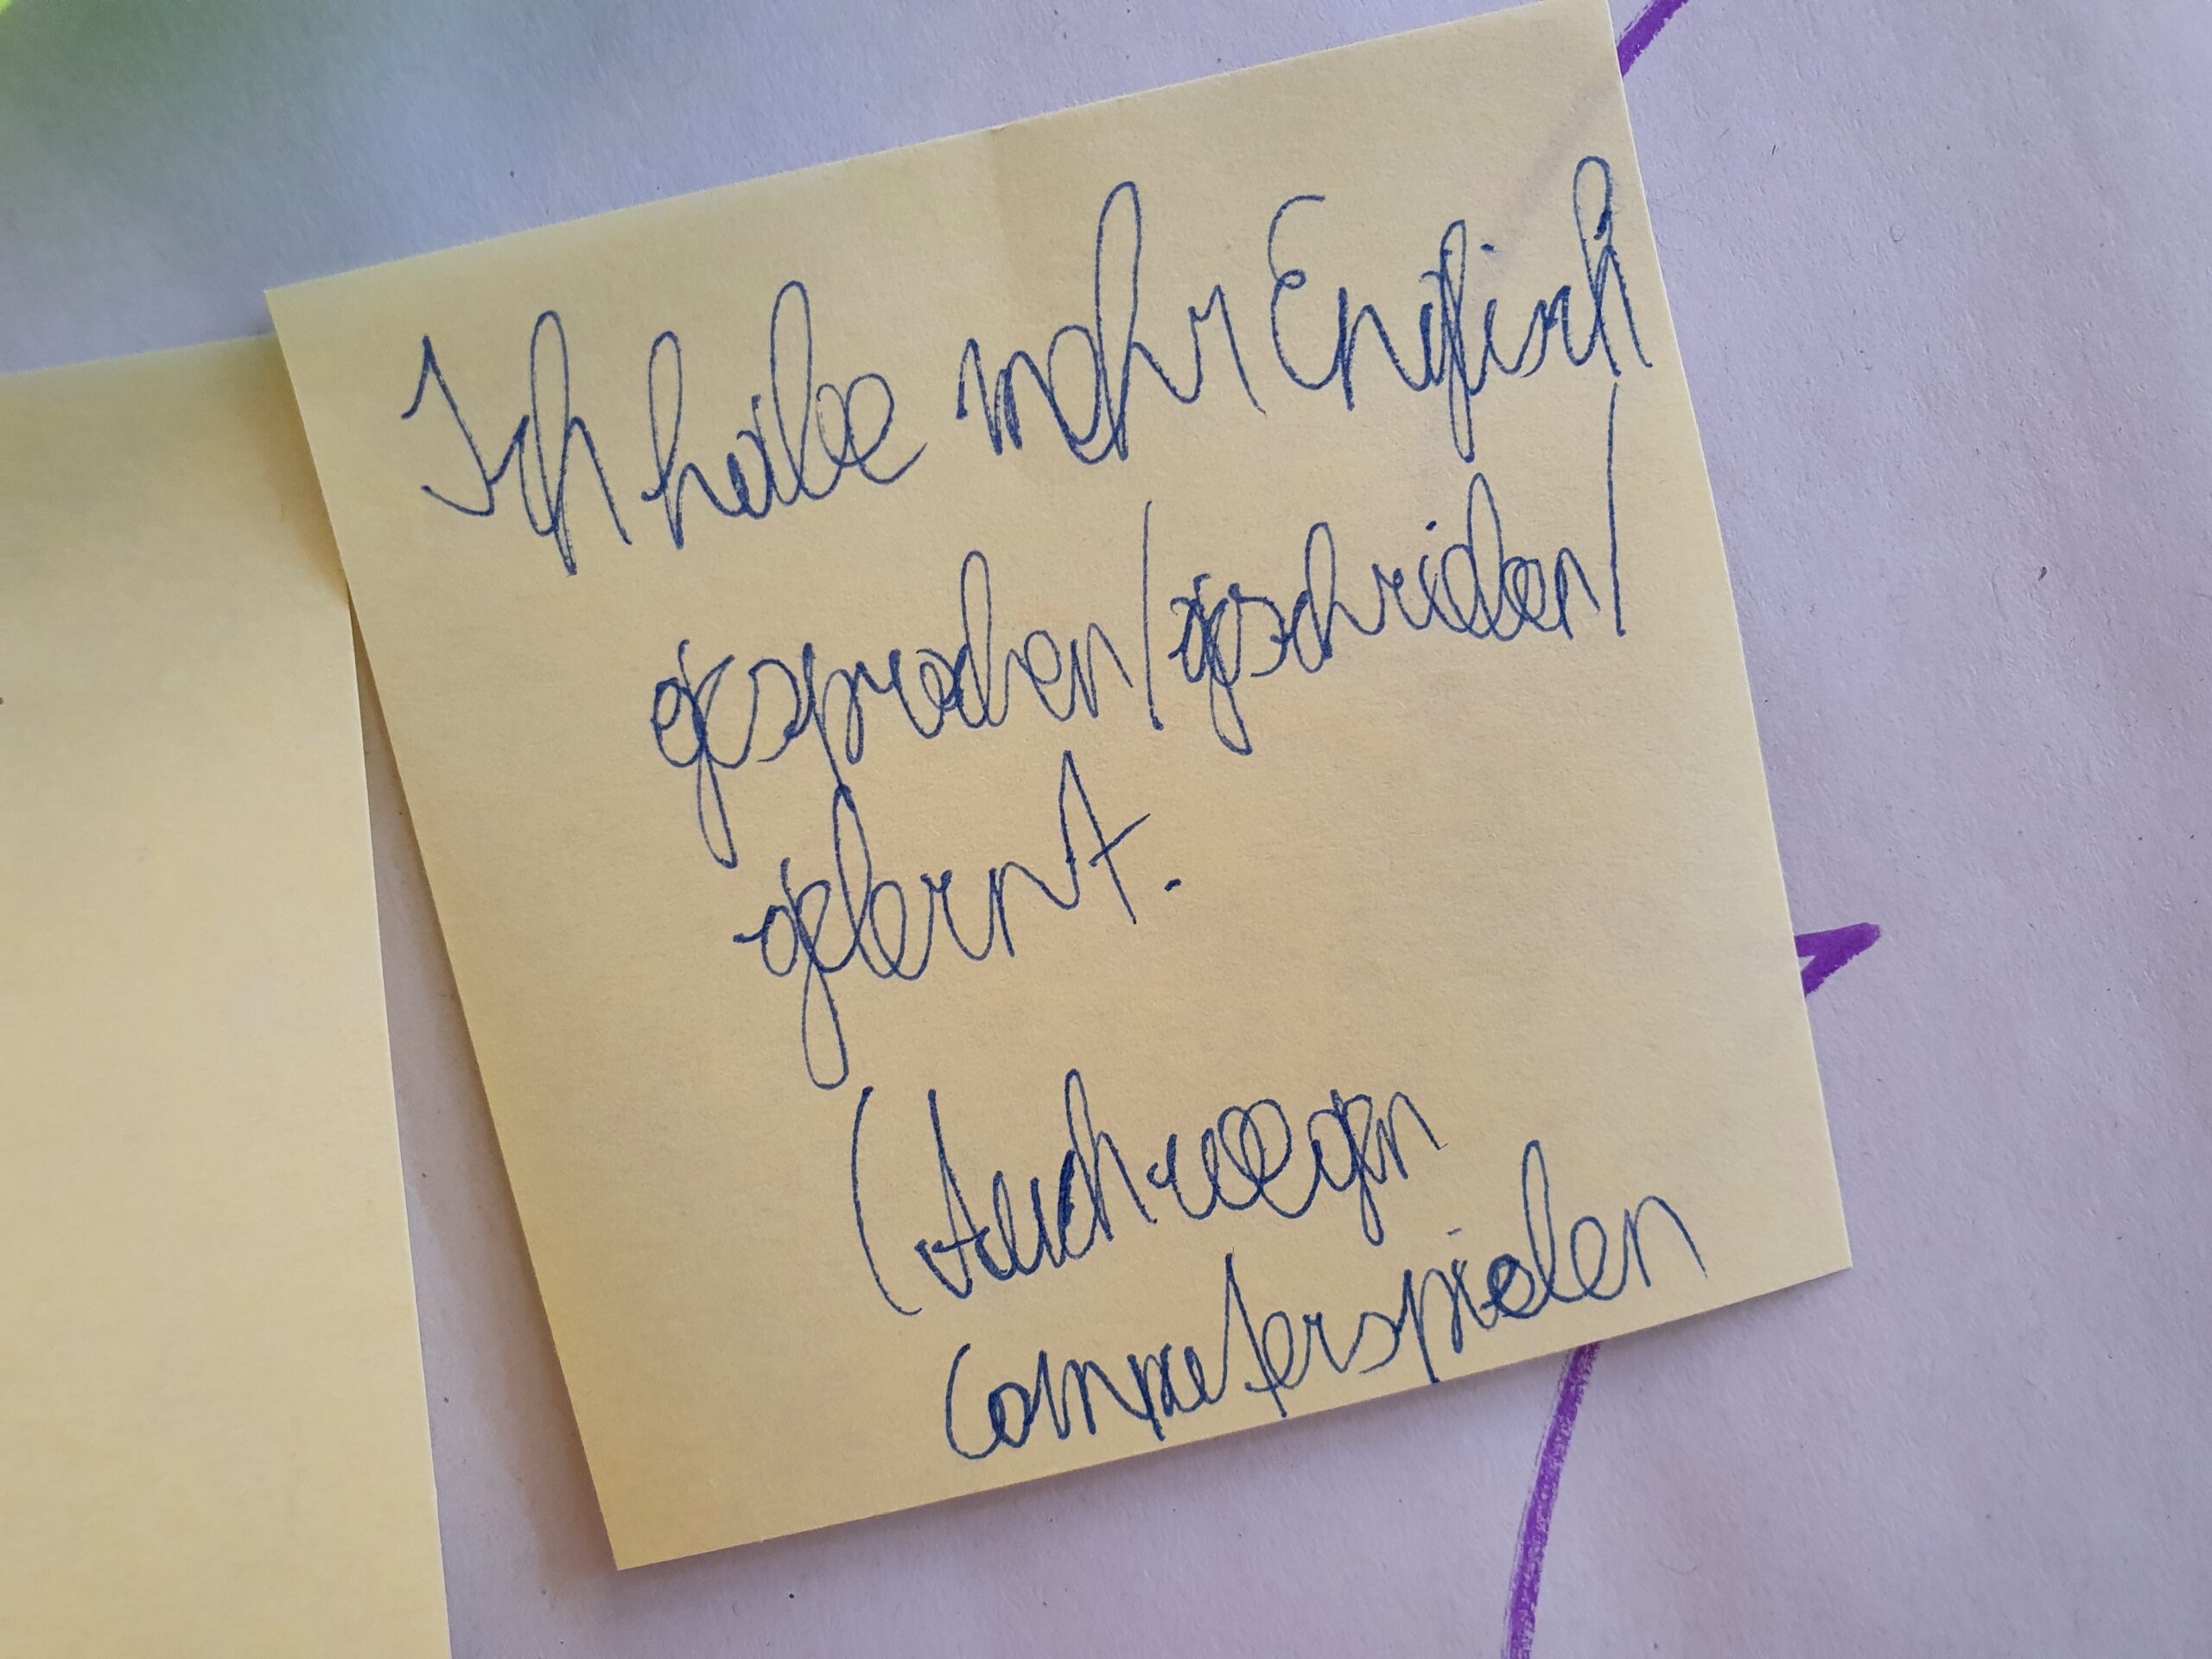 Ich habe mehr Englisch
gesprochen/geschrieben/
gelernt.
(Auch wegen
Computerspielen